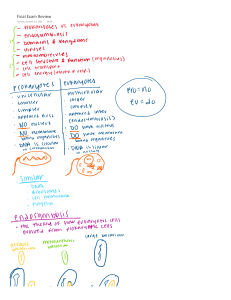 Final Exam Review
- prokaryotes vs eukaryotes
- endosymbiosis
- domains & kingdoms
- viruses
- macromolecules
- cell structure & function (organelles)
- cell transport
- cell energy
prokaryotes
eukaryotes
- unicellular
- multicellular
- smaller
- larger
- simpler
- complex
- appeared first
- appeared later
(endosymbiosis)
- NO nucleus
- DO have nucleus
- NO membrane
organelles
- DO have membrane
organelles
- DNA is circular
- DNA is linear
in nucleus
pro = no
eu = do
similar
- DNA
- ribosomes
- cell membrane
- cytoplasm
endosymbiosis
- the theory of how eukaryotic cells
evolved from prokaryotic cells
large bacterium